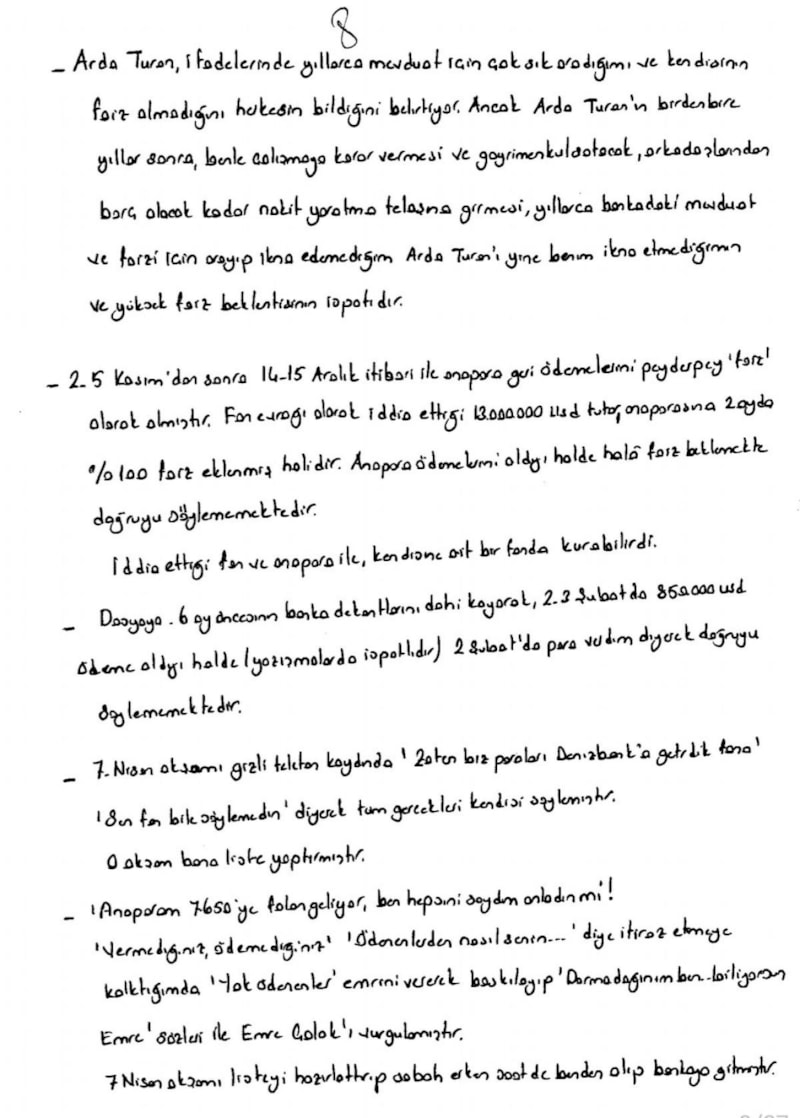 8
- Arda Turan, ifadelerinde yıllarca mevduat için çok sık aradığımı ve kendisinin
faiz almadığını herkesin bildiğini belirtiyor. Ancak Arda Turan'ın birdenbire
yıllar sonra, benle çalışmaya karar vermesi ve gayrimenkul satacak, arkadaşlarından
borç alacak kadar nakit yaratma telaşına girmesi, yıllarca bankadaki mevduat
ve faizi için arayıp ikna edemediğim Arda Turan'ı yine benim ikna etmediğimin
ve yüksek faiz beklentisinin ispatıdır.
- 2.5 Kasım'dan sonra 14-15 Aralık itibari ile anapara geri ödemelerini peyderpey 'faiz'
olarak almıştır. Fon evrağı olarak iddia ettiği 13.000.000 usd tutar, anaparasına 2 ayda
%100 faiz eklenmiş halidir. Anapara ödemelerini aldığı halde hala faiz beklemekte
doğruyu söylememektedir.
İddia ettiği fon ve anapara ile, kendisine ait bir fonda kurabilirdi.
- Dosyaya . 6 ay öncesinin banka dekontlarını dahi koyarak, 2.3 Şubat'da 850.000 usd
ödeme aldığı halde (yazışmalarda ispatlıdır) 2 Şubat'da para verdim diyerek doğruyu
söylememektedir.
- 7.Nisan akşamı gizli telefon kaydında 'Zaten biz paraları Denizbank'a getirdik fona'
'Sen fon bile söylemedin' diyerek tüm gerçekleri kendisi söylemiştir.
O akşam bana liste yaptırmıştır.
- 'Anaparam 7650'ye falan geliyor, ben hepsini saydım anladın mı'!
'Vermediğiniz, ödemediğiniz' 'Ödenenlerden nasıl senin...' diye itiraz etmeye
kalktığımda 'Yok ödenenler' emrini vererek baskılayıp 'Darmadağınım ben..biliyorsun
Emre' sözleri ile Emre Çolak'ı vurgulamıştır.
7 Nisan akşamı listeyi hazırlattırıp sabah erken saatde benden alıp bankaya gitmiştir.